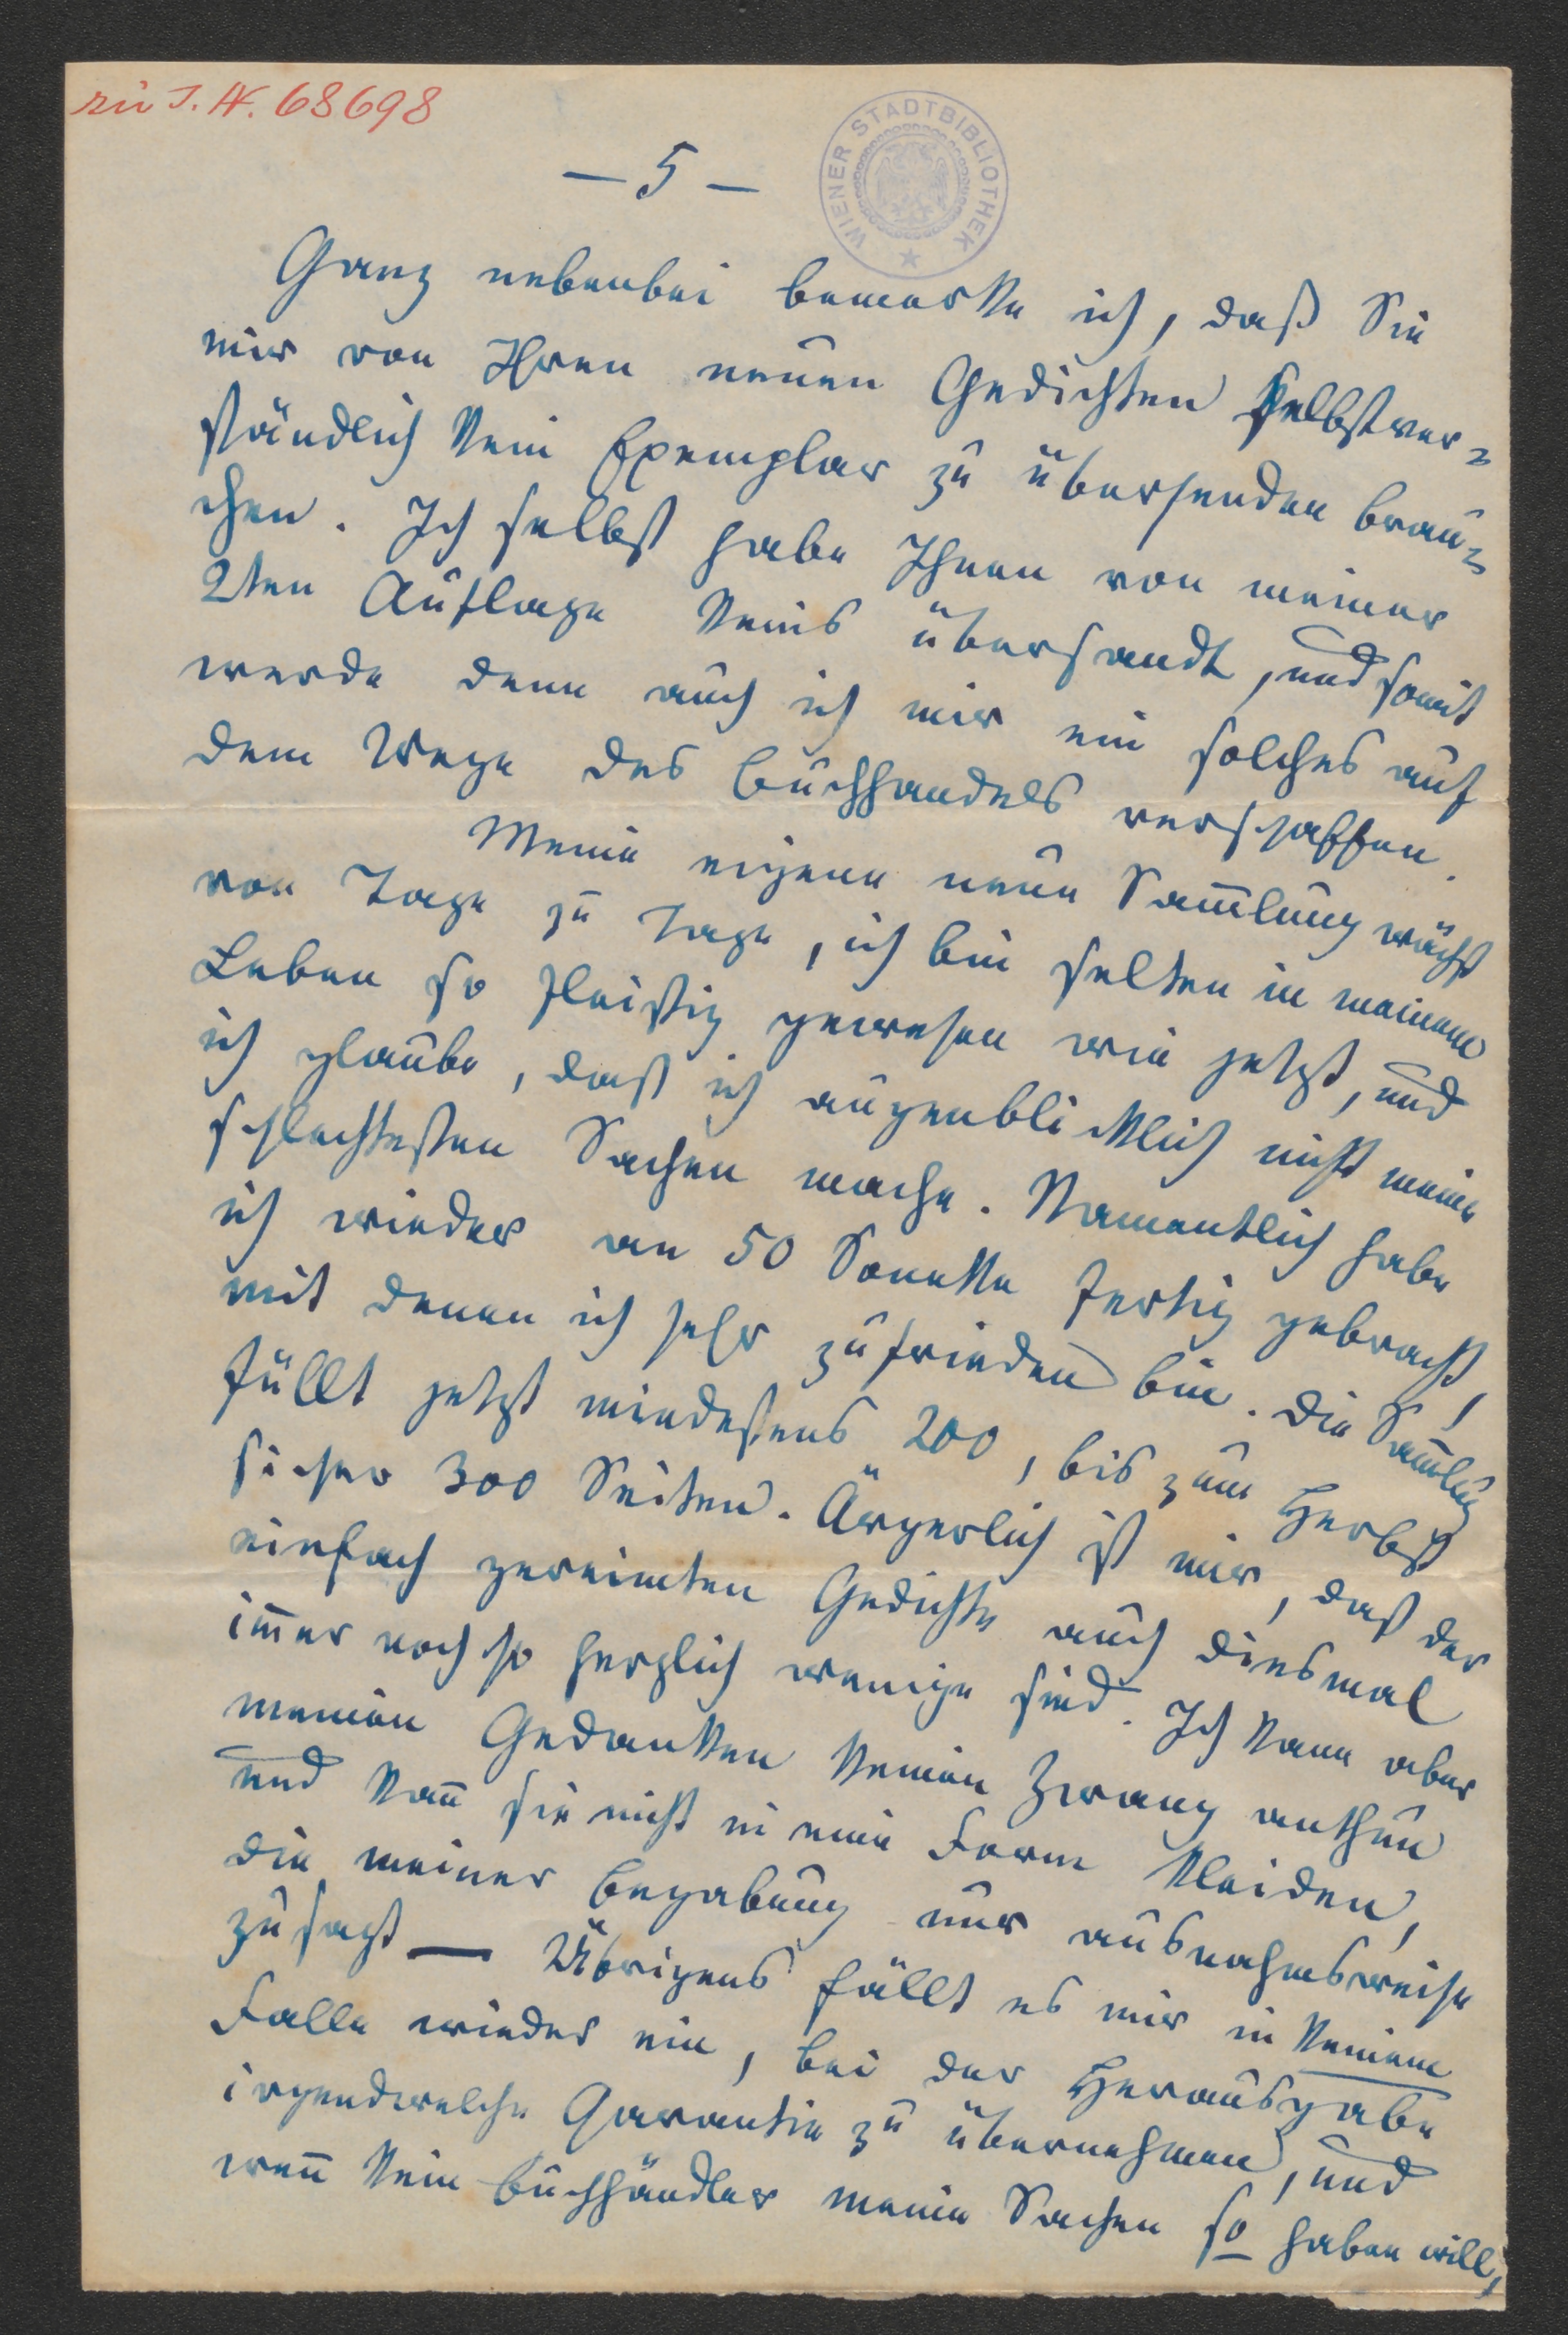 zu I. N. 68698
— 5 —
WIENER STADTBIBLIOTHEK
Ganz nebenbei bemerke ich, daß Sie
mir von Ihren neuen Gedichten selbstver=
ständlich kein Exemplar zu übersenden brau=
chen. Ich selbst habe Ihnen von meiner
2ten Auflage keins übersandt, und somit
werde denn auch ich mir ein solches auf
dem Wege des Buchhandels verschaffen.
Meine eigene neue Sam̅lung wächst
von Tage zu Tage, ich bin selten in meinem
Leben so fleißig gewesen wie jetzt, und
ich glaube, daß ich augenblicklich nicht meine
schlechtesten Sachen mache. Namentlich habe
ich wieder an 50 Sonette fertig gebracht,
mit denen ich sehr zufrieden bin. Die Sam̅lung
füllt jetzt mindestens 200, bis zum Herbst
sicher 300 Seiten. Ärgerlich ist mir, daß der
einfach gereimten Gedichte auch diesmal
im̅er noch so herzlich wenige sind. Ich kann aber
meinen Gedanken keinen Zwang anthun
und kan̅ sie nicht in eine Form kleiden,
die meiner Begabung nur ausnahmsweise
zusagt — Übrigens fällt es mir in keinem
Falle wieder ein, bei der Herausgabe
irgendwelche Garantie zu übernehmen, und
wen̅ kein Buchhändler meine Sachen so haben will,